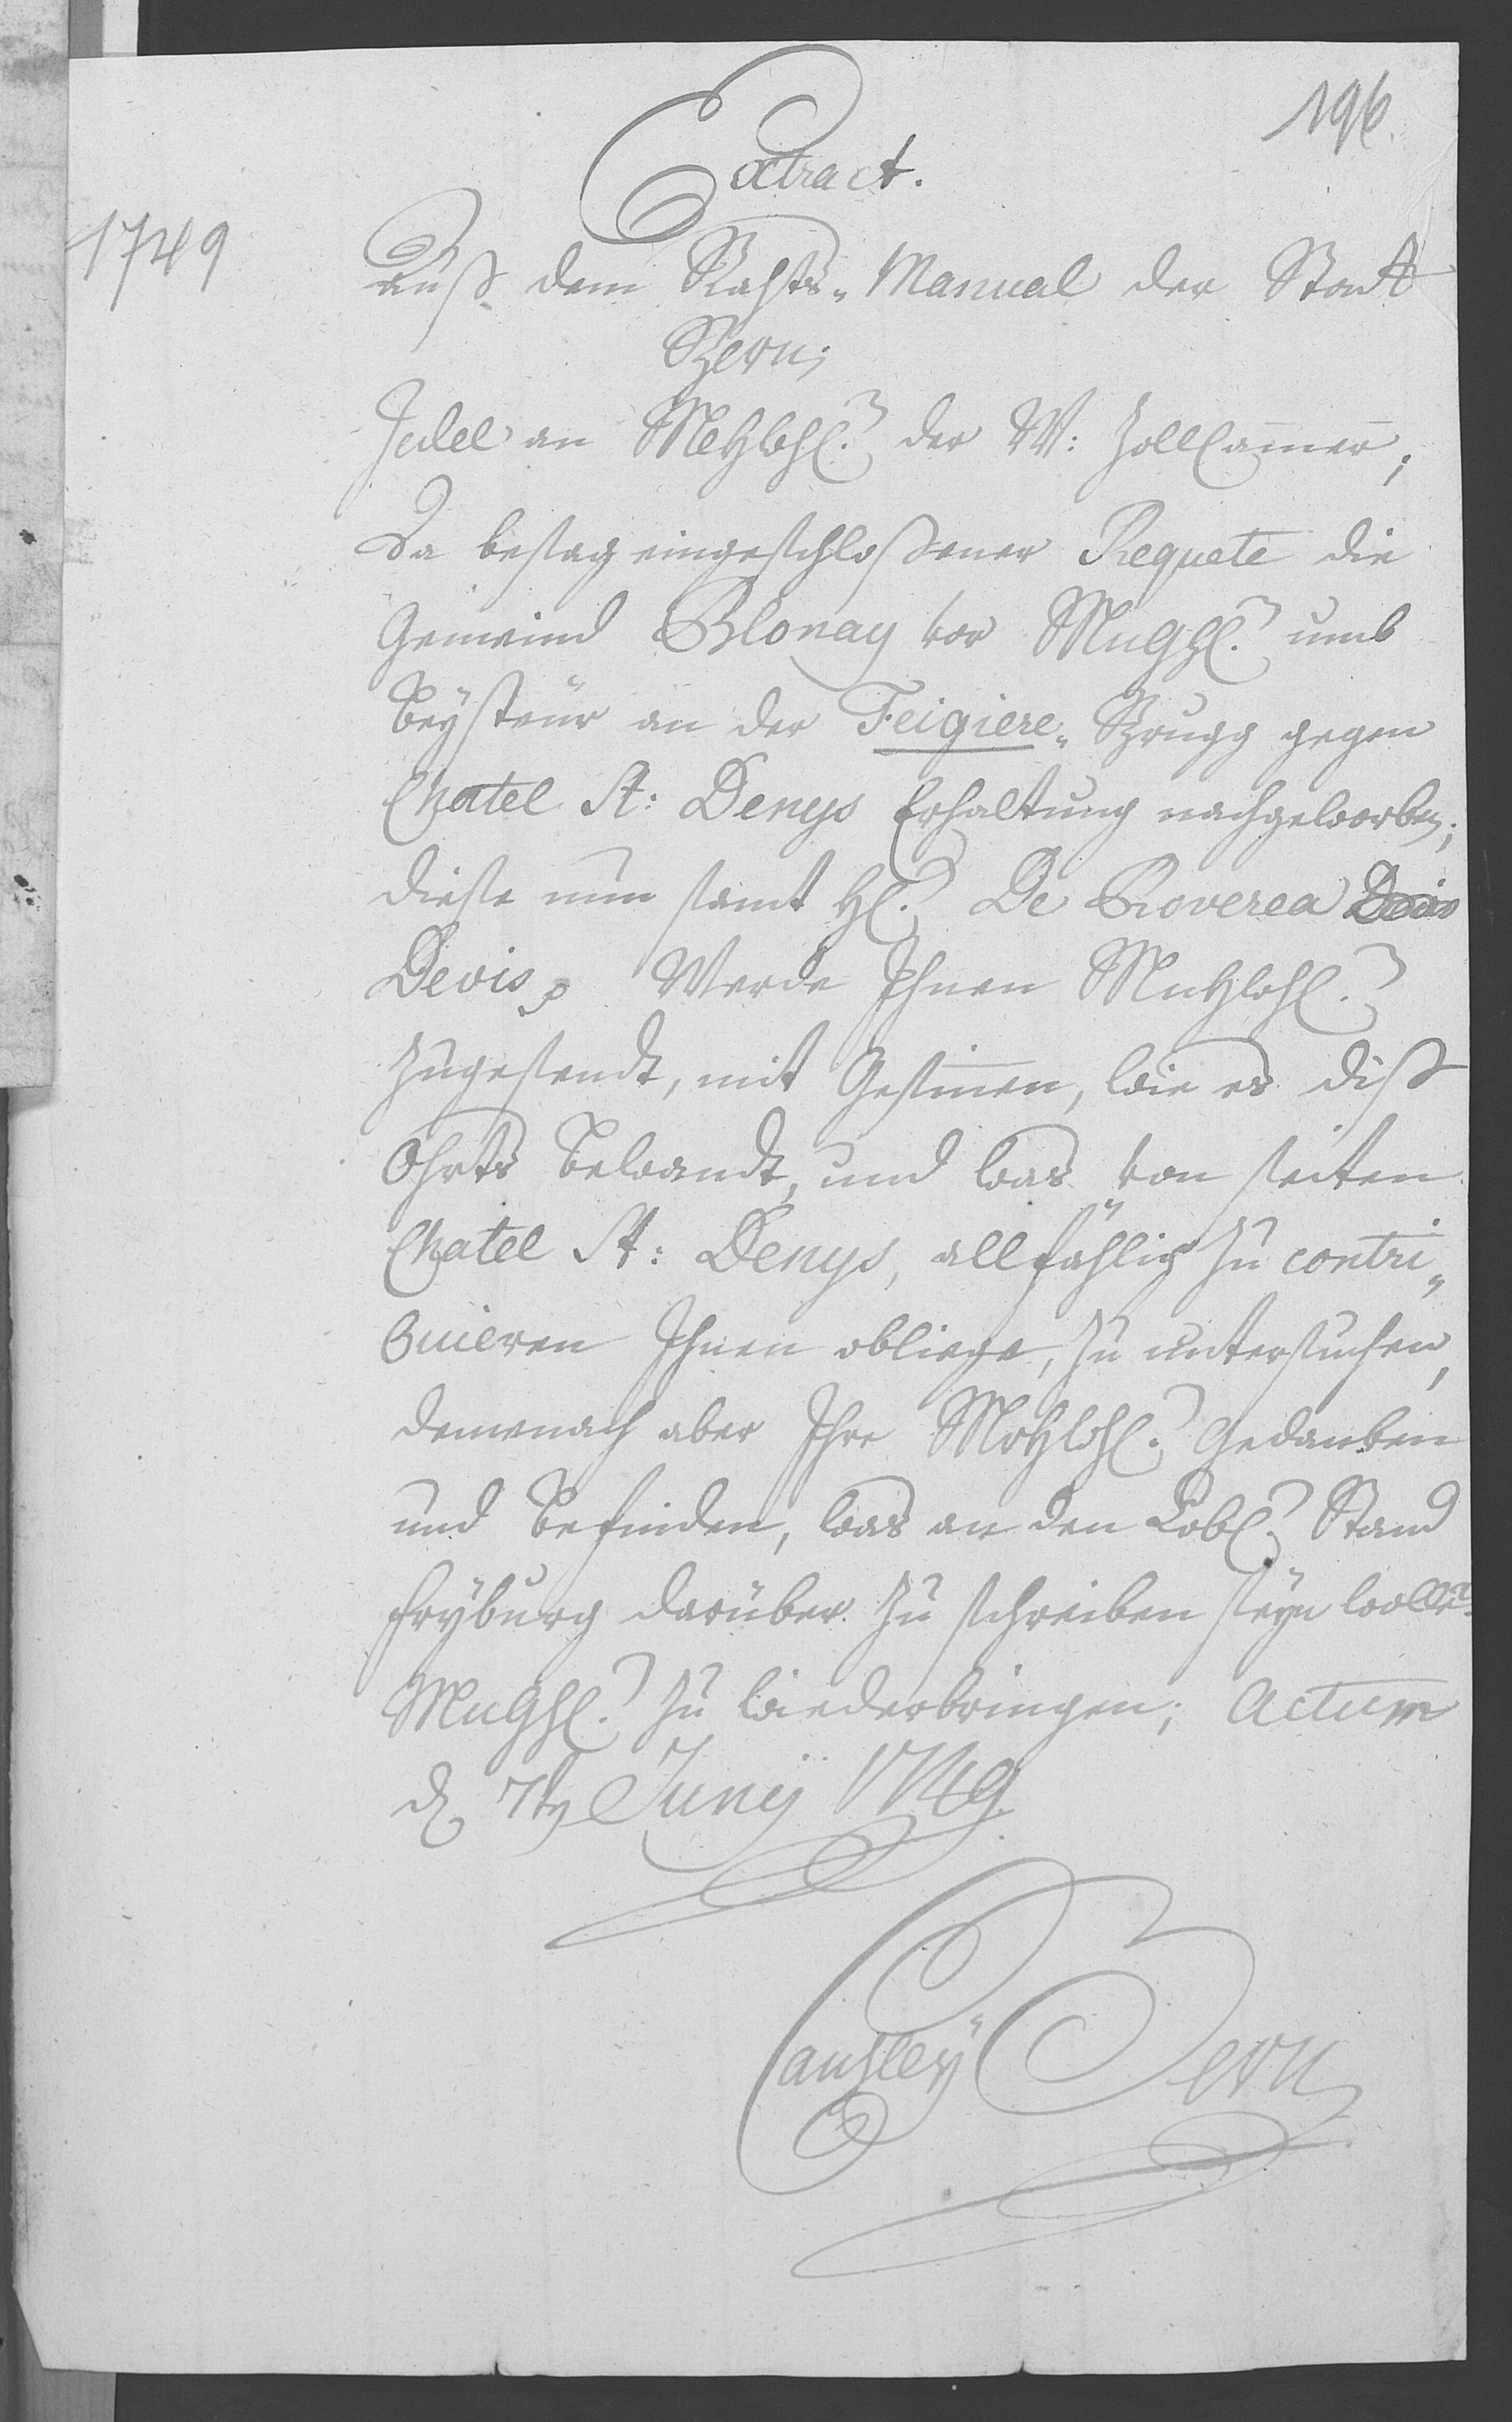 196.
Extract.
1749
Auß dem Rahts-Manual der Statt
Bern;
Zedel an MeHwH. der W: ZollCammer;
Da besag eingeschloßener Requete die
Gemeind Blonay vor MnGH. umb
Beÿsteür an der Feigiere-Brugg gegen
Chatel St: Denys Erhaltung nachgeworben;
diese nun samt H. De Roverea
Devis Werde Ihnen MnHwH.
zugesendt, mit Gesinnen, wie es diß
Ohrts bewandt, und was von seiten
Chatel St: Denys, allfählig zu contri„
buieren Ihnen obliege, zu untersuchen,
demenach aber Ihre MrHwH. Gedanken
und befinden, was an den Lobl. Stand
Frÿburg darüber zu schreiben seÿn wolle
MnGH. zu wiederbringen; Actum
d. 7ten Junÿ 1749.
Cantzleÿ Bern